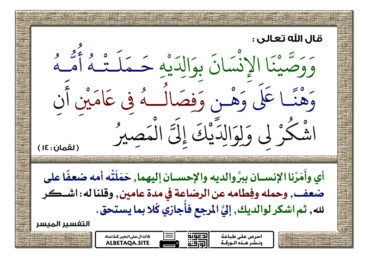 قال الله تعالى :
وَوَصَّيْنَا الإِنْسَانَ بِوَالِدَيْهِ حَمَلَتْهُ أُمُّهُ
وَهْنًا عَلَى وَهْنٍ وَفِصَالُهُ فِي عَامَيْنِ أَنِ
اشْكُرْ لِي وَلِوَالِدَيْكَ إِلَيَّ الْمَصِيرُ
( لقمان : ١٤ )
أي وأَمَرْنا الإنسان ببرِّ والديه والإحسان إليهما, حَمَلَتْه أمه ضعفًا على
ضعف, وحمله وفِطامه عن الرضاعة في مدة عامين, وقلنا له : اشكر
لله , ثم اشكر لوالديك, إليَّ المرجع فأُجازي كُلا بما يستحق .
التفسير الميسر
احرص على طباعة
ونشر هذه الورقة
فالدال على الخير كفاعله
ALBETAQA.SITE